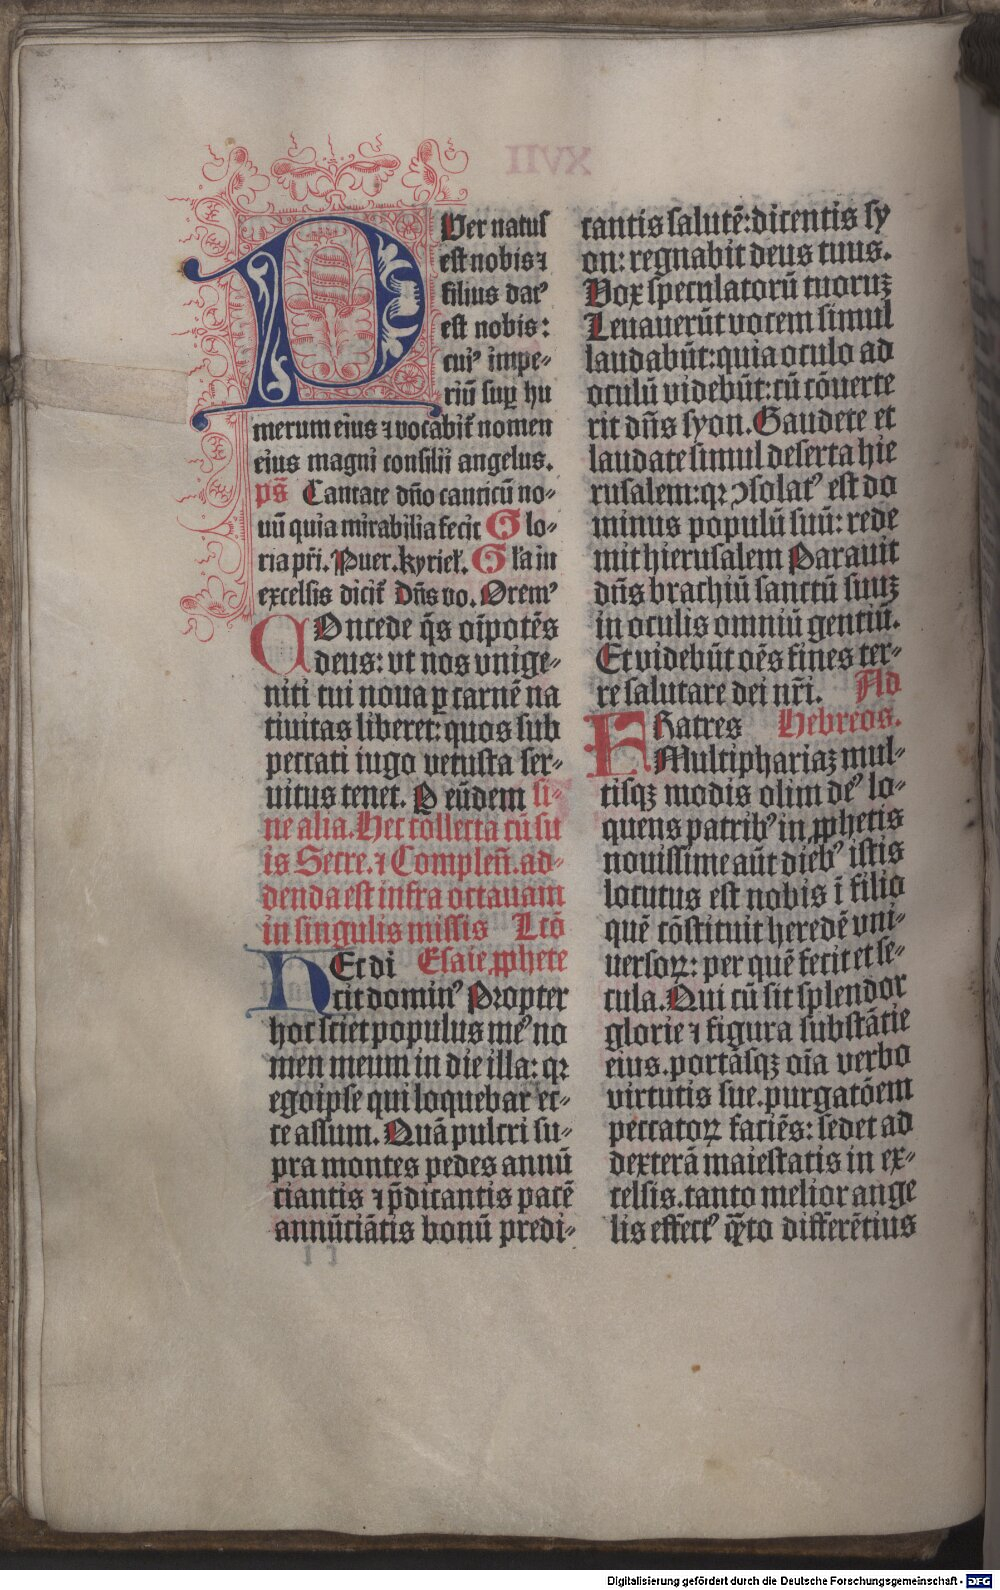 PUer natus
est nobis ⁊
filius dat᷒
est nobis:
cui᷒ impe-
riū suꝑ hu
merum eius ⁊ vocabit᷑ nomen
eius magni consilii angelus.
ps̄ Cantate dn̄o canticū no-
uū quia mirabilia fecit Glo-
ria pr̄i. Puer. kyriel̄. Gl̄a in
excelsis dicit᷑ Dn̄s vo. Orem᷒
COncede q̄s oīpotēs
deus: vt nos vnige-
niti tui noua ꝑ carnē na
tiuitas liberet: quos sub
peccati iugo vetusta ser-
uitus tenet. P eūdem si-
ne alia. Hec collecta cū su
is Secre. ⁊ Complen̄. ad-
denda est infra octauam
in singulis missis Lcō
HEc di Esaie ꝓphete
cit domin᷒ Propter
hoc sciet populus me᷒ no
men meum in die illa: qꝛ
ego ipse qui loquebar ec-
ce assum. Quā pulcri su-
pra montes pedes annū
ciantis ⁊ p̄dicantis pacē
annūciātis bonū predi-
cantis salutē: dicentis sy
on: regnabit deus tuus.
Vox speculatorū tuoruꝫ
Leuauerūt vocem simul
laudabūt: quia oculo ad
oculū videbūt: cū cōuerte
rit dn̄s syon. Gaudete et
laudate simul deserta hie
rusalem: qꝛ ↄsolat᷒ est do
minus populū suū: rede
mit hierusalem Parauit
dn̄s brachiū sanctū suuꝫ
in oculis omniū gentiū.
Et videbūt oēs fines ter-
re salutare dei nr̄i. Ad
FRatres Hebreos.
Multiphariaꝫ mul-
tisqꝫ modis olim de᷒ lo-
quens patrib᷒ in ꝓphetis
nouissime aūt dieb᷒ istis
locutus est nobis ī filio
quē cōstituit heredē vni-
uersoꝝ: per quē fecit et se-
cula. Qui cū sit splendor
glorie ⁊ figura substātie
eius. portāsqꝫ oīa verbo
virtutis sue. purgatōem
peccatoꝝ faciēs: sedet ad
dexterā maiestatis in ex-
celsis. tanto melior ange
lis effect᷒ q̄̄to differētius
Digitalisierung gefördert durch die Deutsche Forschungsgemeinschaft - DFG